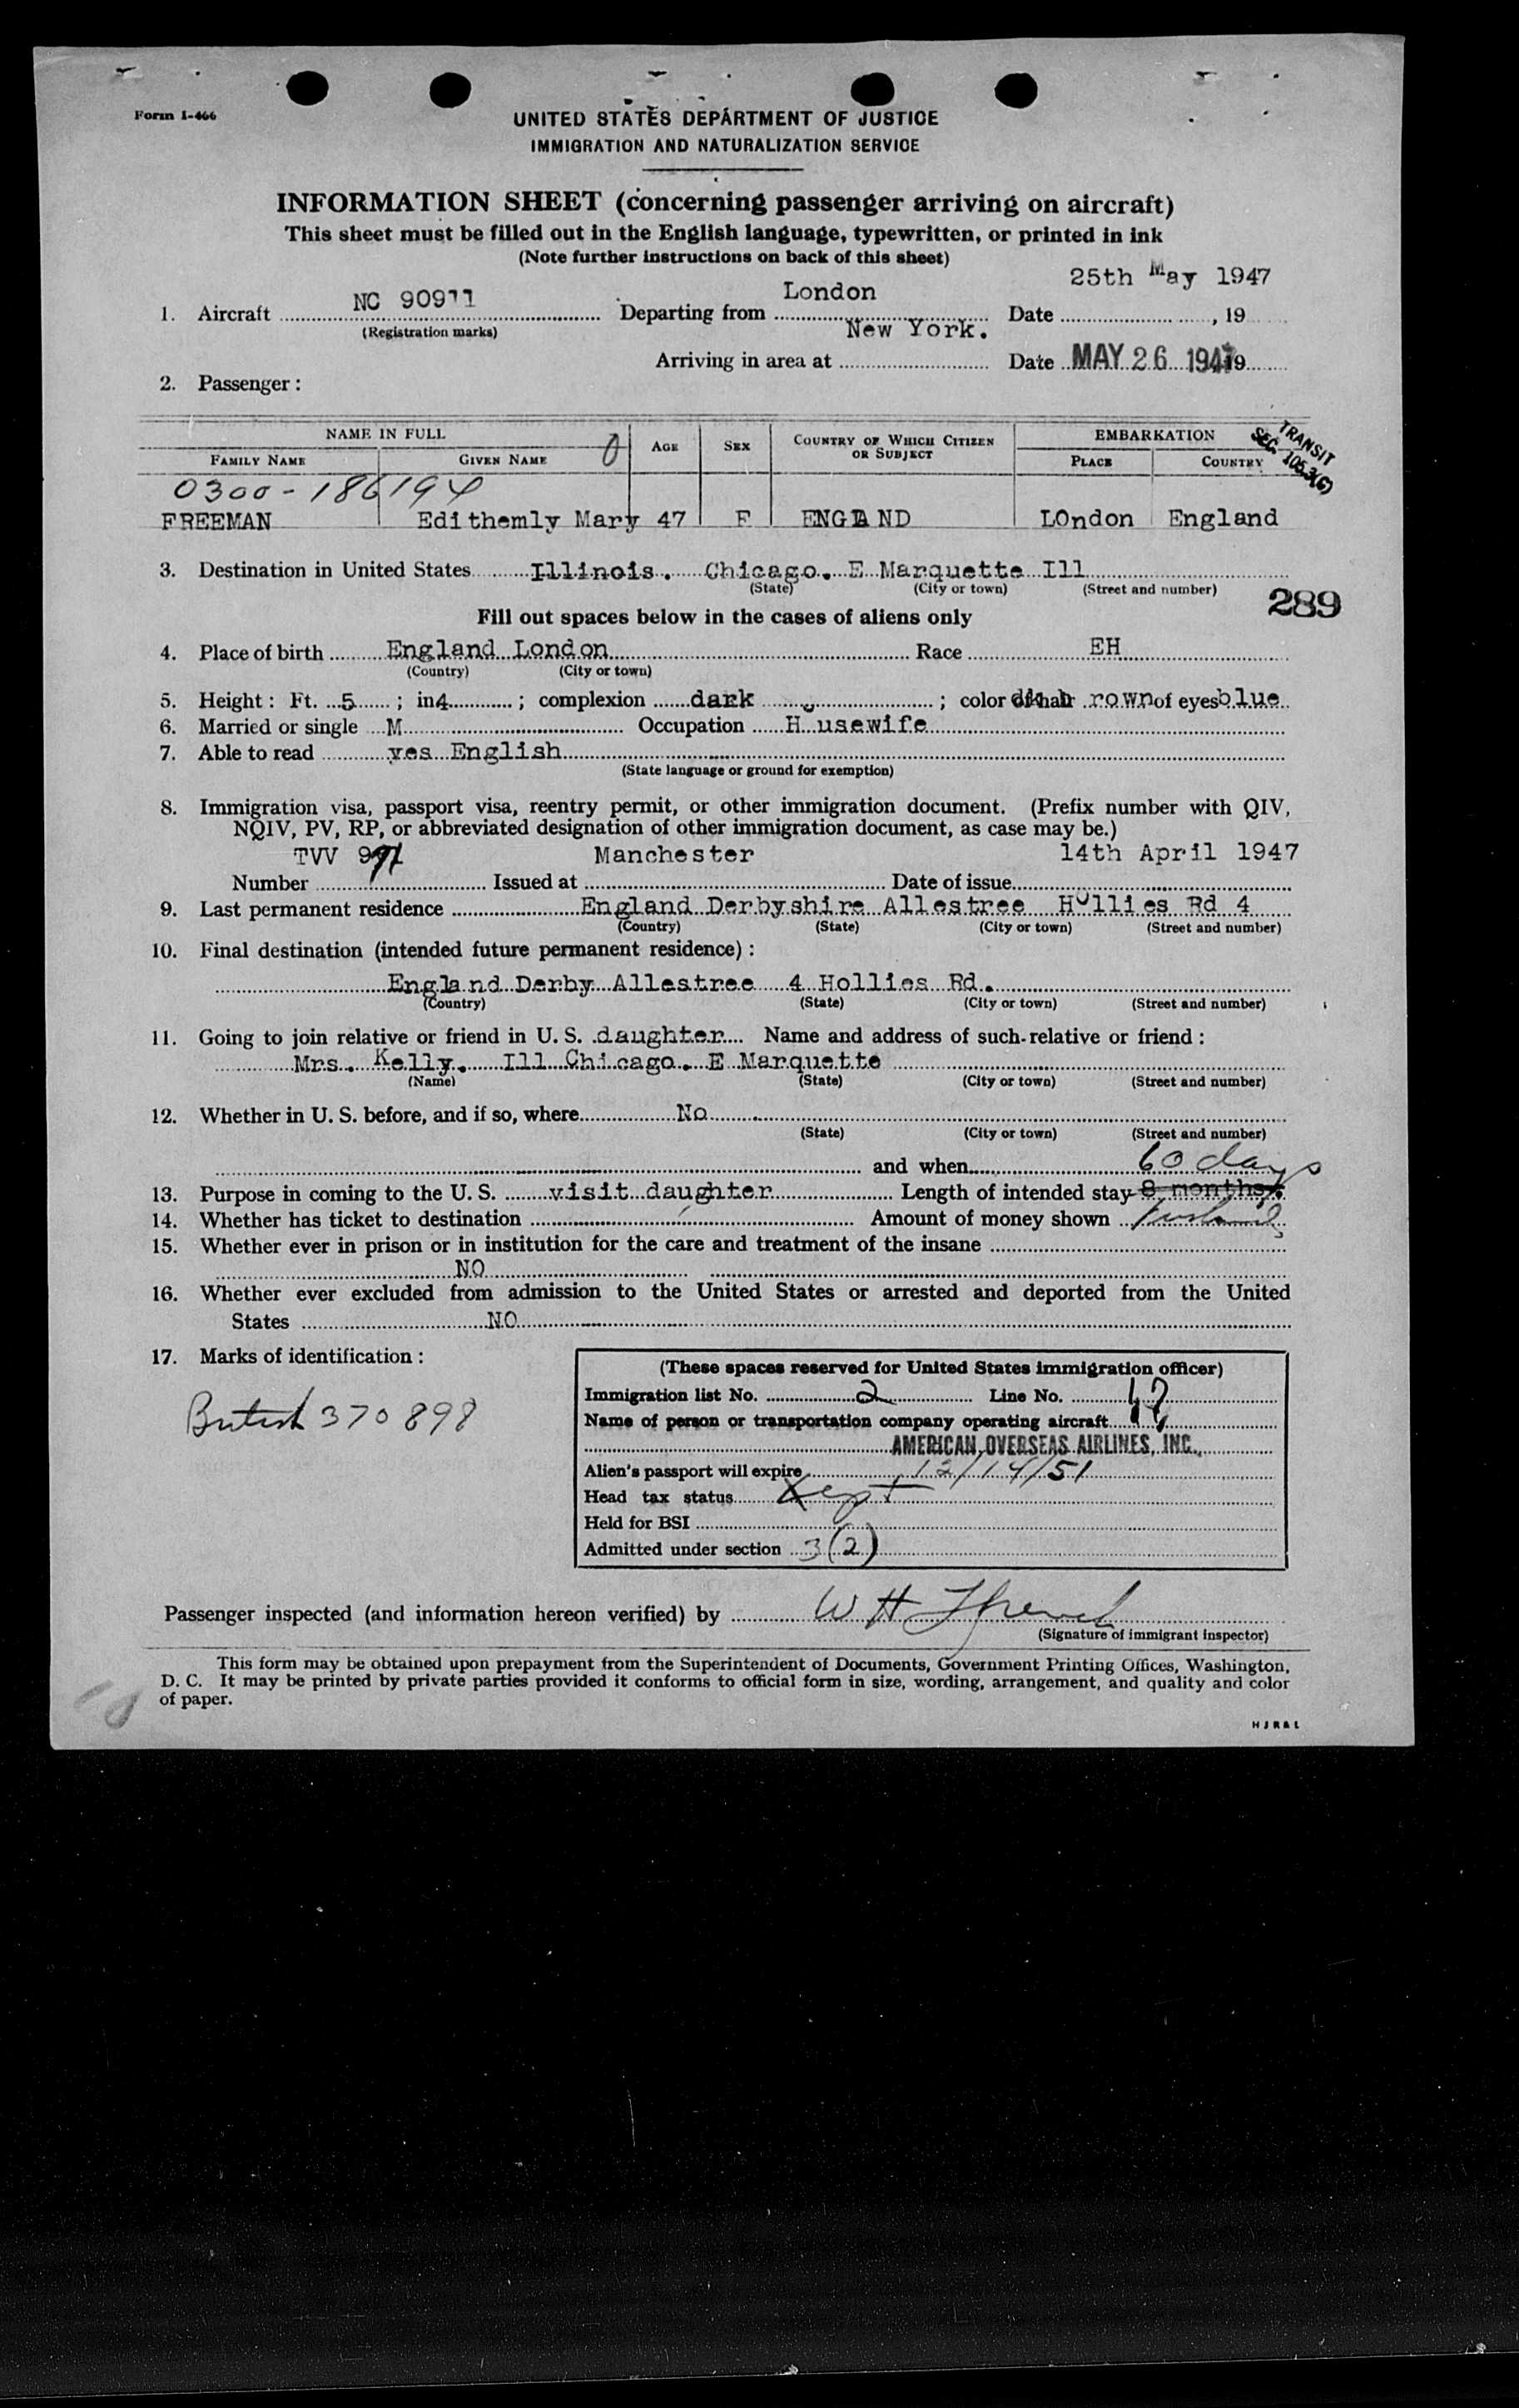 Form I-466
UNITED STATES DEPARTMENT OF JUSTICE
IMMIGRATION AND NATURALIZATION SERVICE
INFORMATION SHEET (concerning passenger arriving on aircraft)
This sheet must be filled out in the English language, typewritten, or printed in ink
(Note further instructions on back of this sheet)
25th May 1947
1. Aircraft NC 90911 Departing from London Date , 19
(Registration marks)
Arriving in area at New York. Date MAY 26 1947 19
2. Passenger :
NAME IN FULL AGE SEX COUNTRY OF WHICH CITIZEN OR SUBJECT EMBARKATION
FAMILY NAME GIVEN NAME PLACE COUNTRY
TRANSIT
SEC. 105.3(G)
0300-186194
FREEMAN Edithemly Mary 47 F ENGLAND LOndon England
3. Destination in United States Illinois. Chicago. E Marquette Ill
(State) (City or town) (Street and number)
289
Fill out spaces below in the cases of aliens only
4. Place of birth England London Race EH
(Country) (City or town)
5. Height : Ft. 5 ; in 4 ; complexion dark ; color of hair rown of eyes blue
6. Married or single M Occupation H usewife
7. Able to read yes English
(State language or ground for exemption)
8. Immigration visa, passport visa, reentry permit, or other immigration document. (Prefix number with QIV,
NQIV, PV, RP, or abbreviated designation of other immigration document, as case may be.)
TVV 991 Manchester 14th April 1947
Number Issued at Date of issue
9. Last permanent residence England Derbyshire Allestree Hollies Rd 4
(Country) (State) (City or town) (Street and number)
10. Final destination (intended future permanent residence) :
England Derby Allestree 4 Hollies Rd.
(Country) (State) (City or town) (Street and number)
11. Going to join relative or friend in U. S. daughter Name and address of such relative or friend :
Mrs. Kelly. Ill Chicago. E Marquette
(Name) (State) (City or town) (Street and number)
12. Whether in U. S. before, and if so, where No
(State) (City or town) (Street and number)
and when 60 days
13. Purpose in coming to the U. S. visit daughter Length of intended stay 8 months.
14. Whether has ticket to destination Amount of money shown
15. Whether ever in prison or in institution for the care and treatment of the insane
NO
16. Whether ever excluded from admission to the United States or arrested and deported from the United
States NO
17. Marks of identification :
British 370898
(These spaces reserved for United States immigration officer)
Immigration list No. 2 Line No. 12
Name of person or transportation company operating aircraft
AMERICAN OVERSEAS AIRLINES, INC.
Alien's passport will expire 12/14/51
Head tax status Xept
Held for BSI
Admitted under section 3(2)
Passenger inspected (and information hereon verified) by W H
(Signature of immigrant inspector)
This form may be obtained upon prepayment from the Superintendent of Documents, Government Printing Offices, Washington,
D. C. It may be printed by private parties provided it conforms to official form in size, wording, arrangement, and quality and color
of paper.
H J R & L